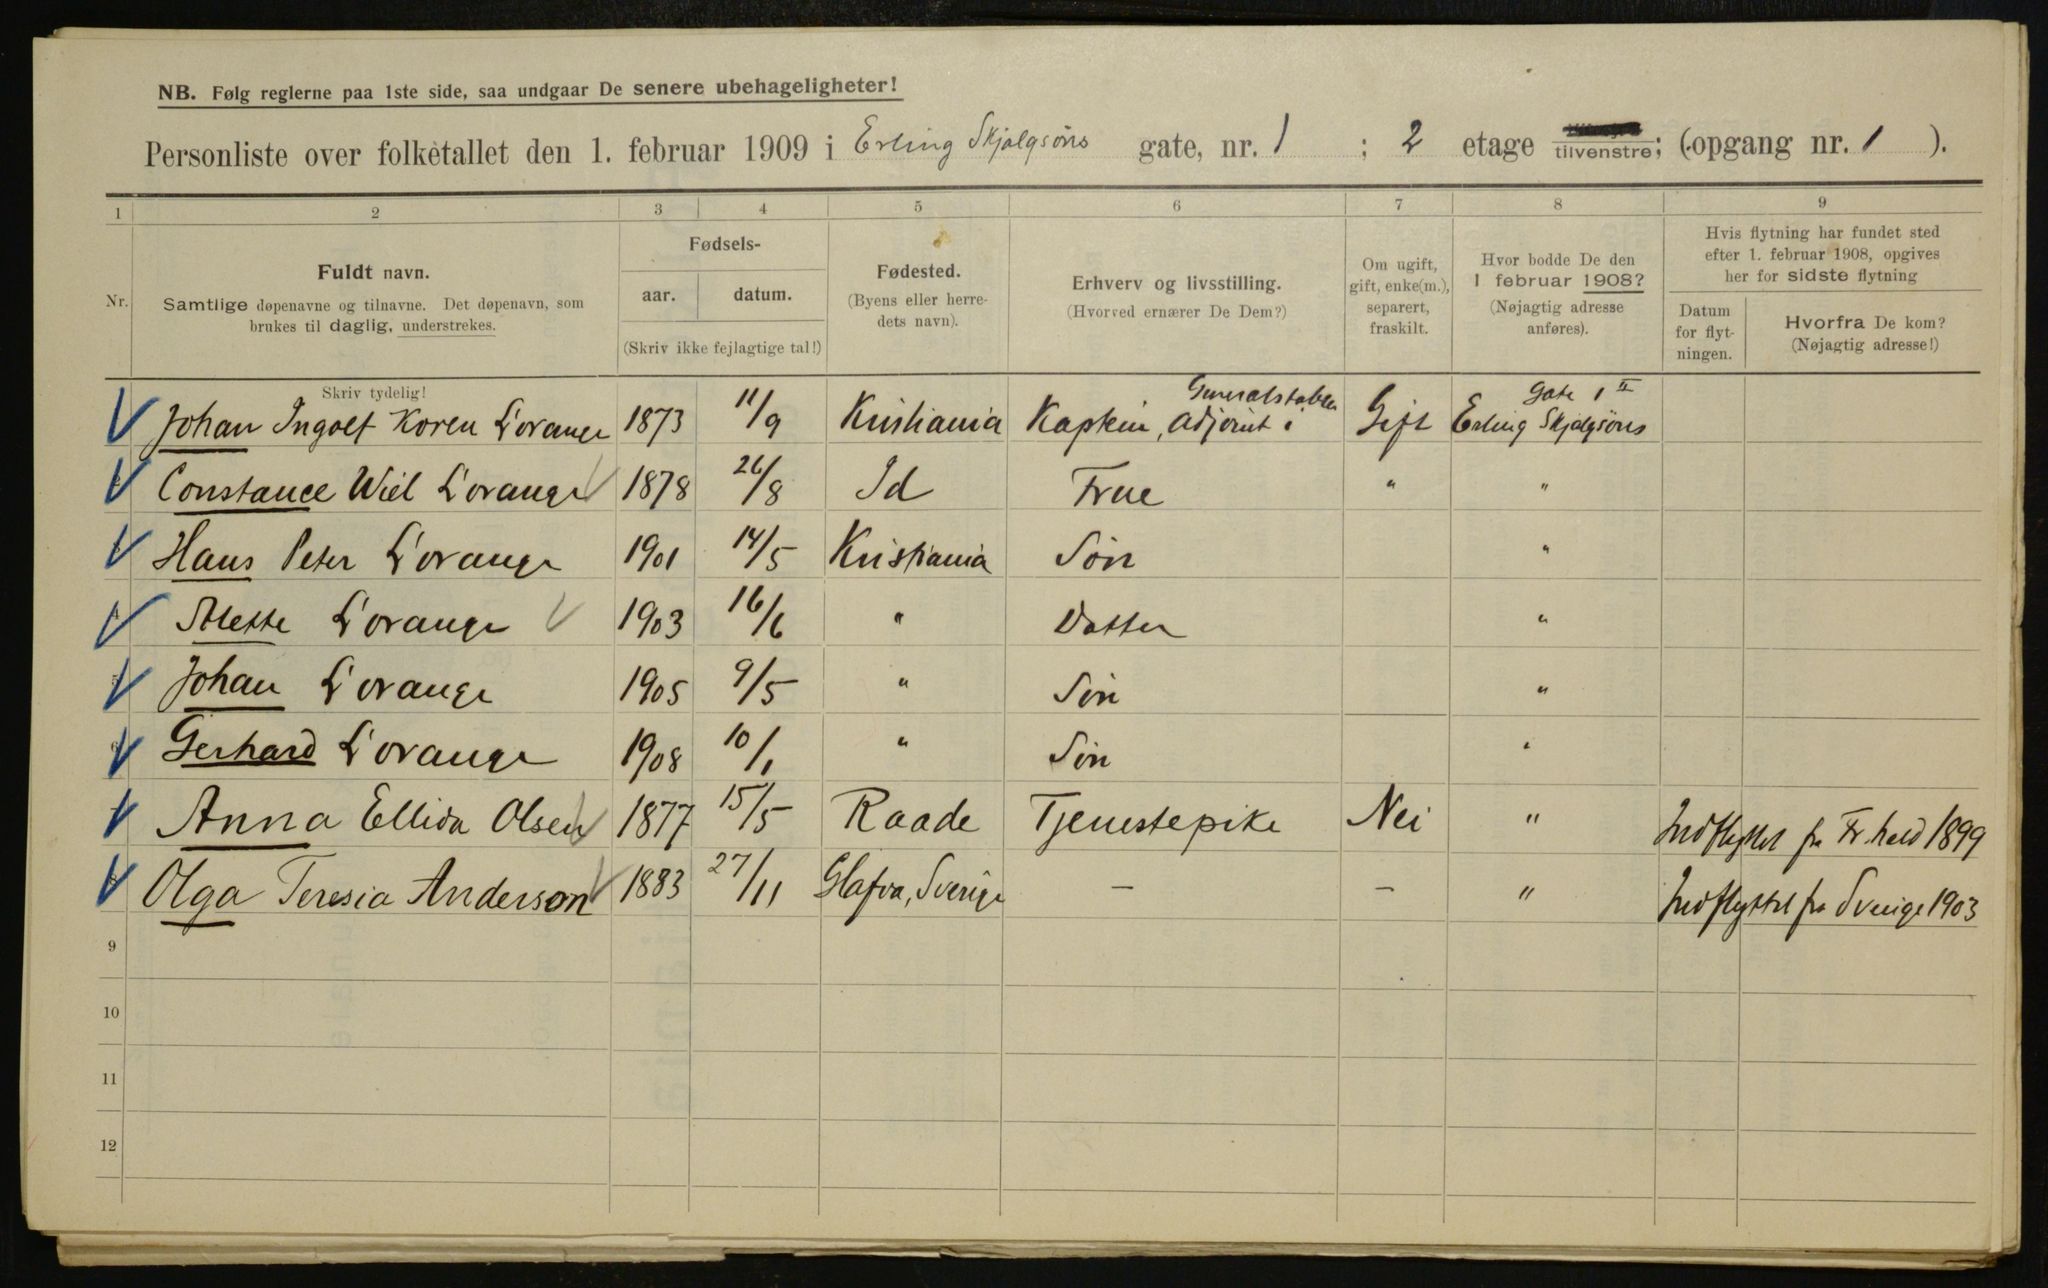 NB. Følg reglerne paa 1ste side, saa undgaar De senere ubehageligheter!
Personliste over folketallet den 1. februar 1909 i Erling Skjalgsøns gate, nr. 1 ; 2 etage tilvenstre; (opgang nr. 1 ).
1 2 3 4 5 6 7 8 9
Nr.
Fuldt navn.
Samtlige døpenavne og tilnavne. Det døpenavn, som
brukes til daglig, understrekes.
Fødsels-
aar. datum.
(Skriv ikke fejlagtige tal!)
Fødested.
(Byens eller herre-
dets navn).
Erhverv og livsstilling.
(Hvorved ernærer De Dem?)
Om ugift,
gift, enke(m.),
separert,
fraskilt.
Hvor bodde De den
1 februar 1908?
(Nøjagtig adresse
anføres).
Hvis flytning har fundet sted
efter 1. februar 1908, opgives
her for sidste flytning
Datum
for flyt-
ningen.
Hvorfra De kom?
(Nøjagtig adresse!)
Skriv tydelig!
Generalstaben Gate 1 II
Johan Ingolf Koren L'orange 1873 11/9 Kristiania Kaptein, Adjoint i Gift Erling Skjalgsøns
Constance Wiel L'orange 1878 26/8 Id Frue " "
Hans Peter L'orange 1901 14/5 Kristiania Søn "
Mette L'orange 1903 16/6 " Datter "
Johan L'orange 1905 9/5 " Søn "
Gerhard L'orange 1908 10/1 " Søn "
Anna Ellida Olsen 1877 15/5 Raade Tjenestepike Nei " Indflyttet fra Fr.hald 1899
Olga Teresia Anderson 1883 27/11 Glafva, Sverige — — " Indflyttet fra Sverige 1903
9
10
11
12